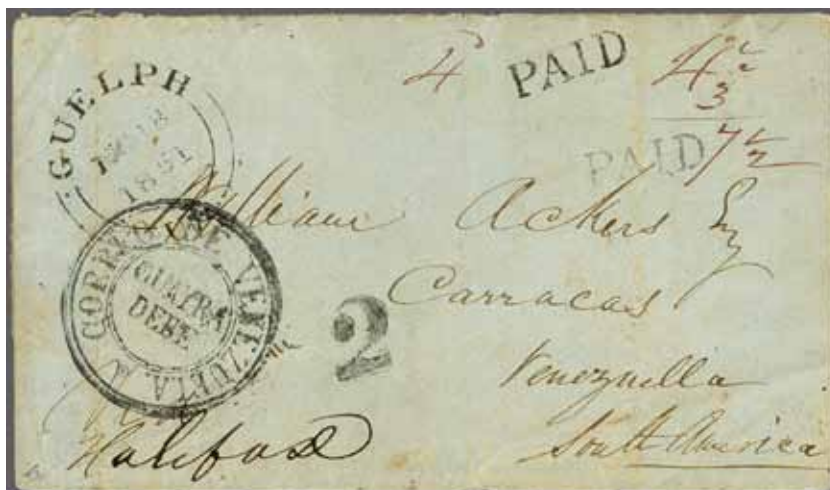 GUELPH
1851
4
PAID
4½
3
7½
PAID
William Ackers Esq
Carracas
Venezuella
South America
CORREO DE VENEZUELA
GUAYRA
DEBE
2
Halifax